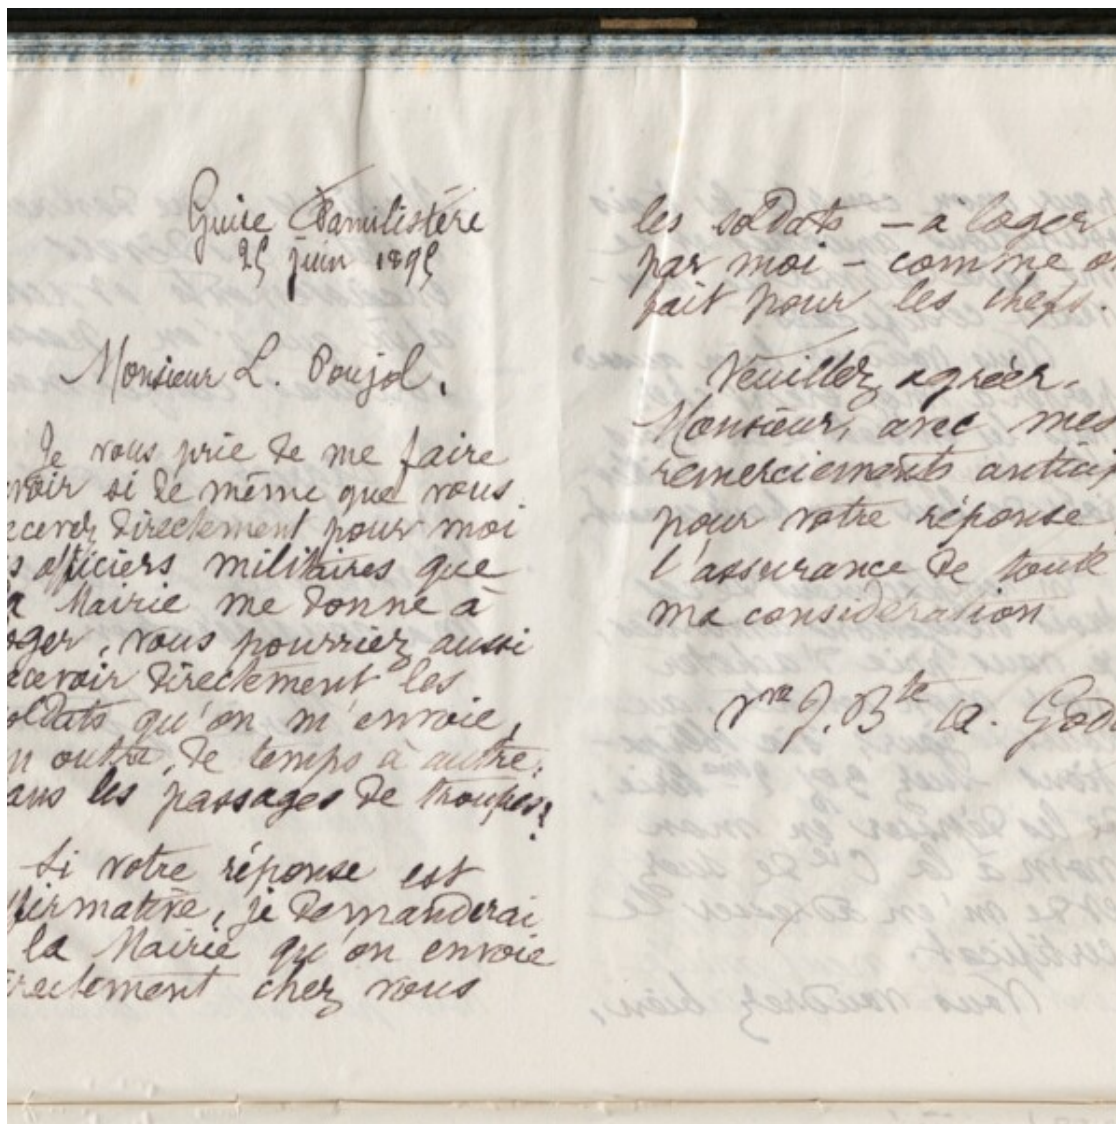 Guise Familistère
25 juin 1895
Monsieur L. Poujol,
Je vous prie de me faire
voir si de même que vous
ecevez directement pour moi
s officiers militaires que
a Mairie me donne à
oger, vous pourriez aussi
ecevoir directement les
oldats qu'on m'envoie,
n outre, de temps à autre,
ans les passages de troupes?
Si votre réponse est
ffirmative, je demanderai
la Mairie qu'on envoie
rectement chez vous
les soldats – à loger
par moi – comme o
fait pour les chefs.
Veuillez agréer,
Monsieur, avec mes
remerciements antici
pour votre réponse
l'assurance de toute
ma considération
Vve J. Bte A. God